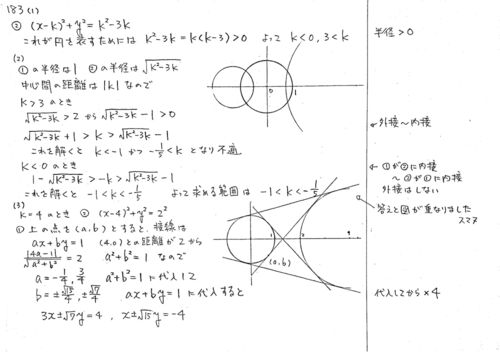 183 (1)
② (x-k)²+y²= k²-3k
これが円を表すためには k²-3k = k(k-3) > 0 よって k<0, 3<k
半径>0
(2)
①の半径は1 ②の半径は√k²-3k
中心間の距離は|k|なので
k>3のとき
√k²-3k > 2 から √k²-3k - 1 > 0
√k²-3k + 1 > k > √k²-3k - 1
外接〜内接
これを解くと k<-1 かつ -1/5<k となり不適
k<0 のとき
1-√k²-3k > -k > √k²-3k - 1
①が②に内接
〜②が①に内接
外接はしない
これを解くと -1<k<-1/5 よって求める範囲は -1<k<-1/5
答えと図が重なりました
スマヌ
(3)
k=4のとき ② (x-4)²+y²=2²
①上の点を(a,b)とすると、接線は
ax+by=1 (4,0)との距離が2から
|4a-1|/√a²+b² = 2 a²+b²=1 なので
a=-1/4, 3/4 a²+b²=1に代入して
b=±√15/4, ±√7/4 ax+by=1に代入すると
代入してから×4
3x±√7y=4 , x±√15y=-4
0
1
0
1
2
4
(a,b)